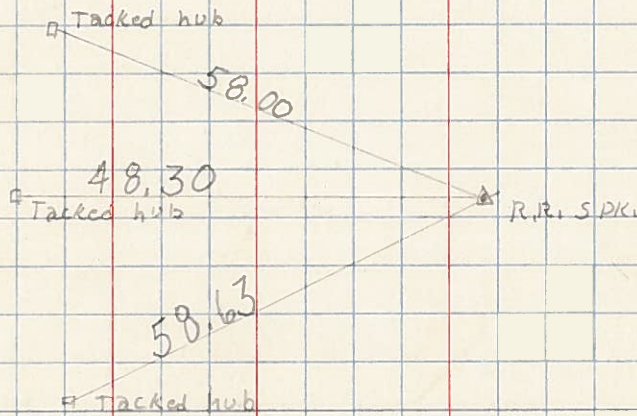 Tacked hub
58.00
48.30
Tacked hub
R.R. SPK.
58.63
Tacked hub